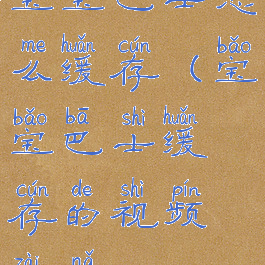 me huǎn cún bǎo
么缓存（宝
bǎo bā shì huǎn
宝巴士缓
cún de shì pín
存的视频
zài nǎ